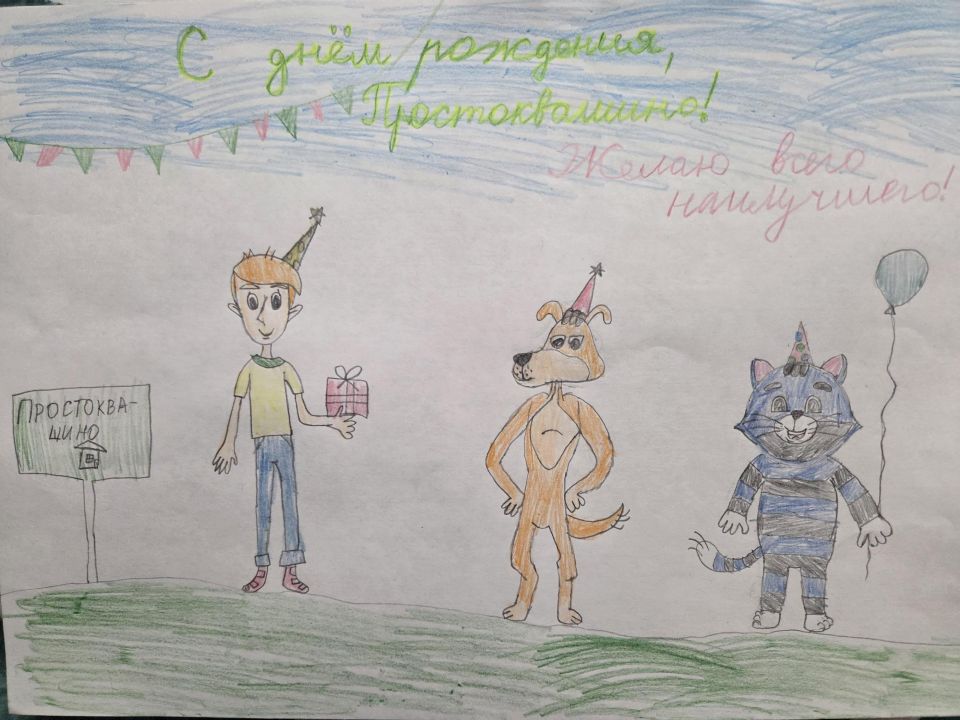 С днём рождения,
Простоквашино!
Желаю всего
наилучшего!
ПРОСТОКВА-
ШИНО